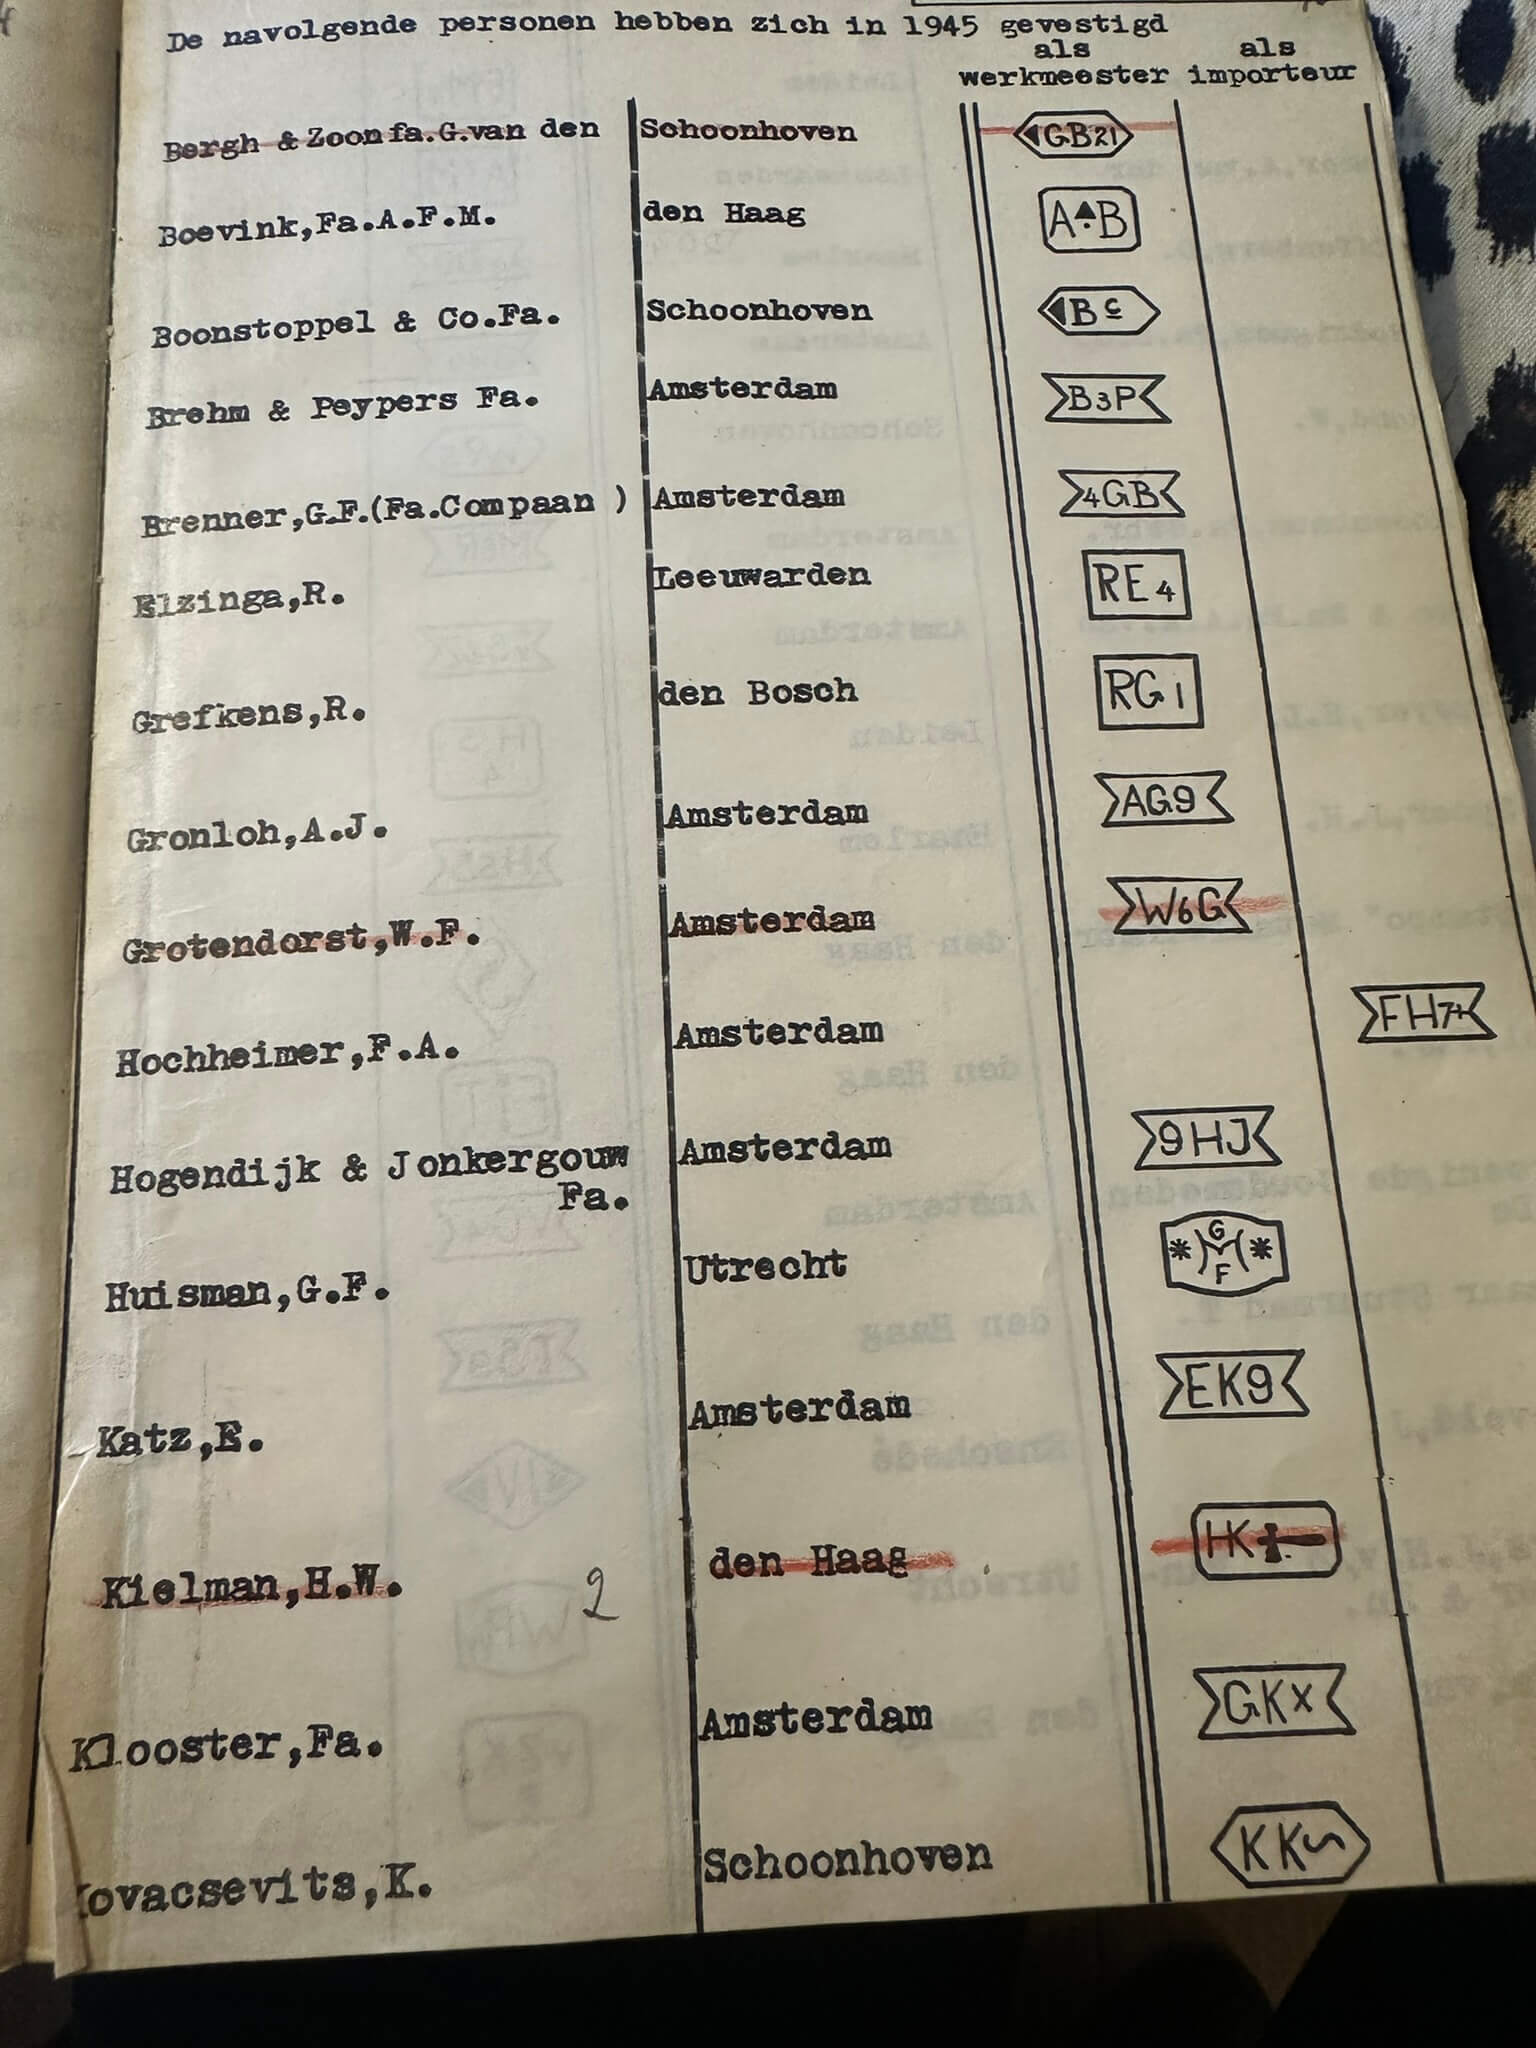 De navolgende personen hebben zich in 1945 gevestigd
als als
werkmeester importeur
Bergh & Zoon fa.G.van den Schoonhoven GB21
Boevink,Fa.A.F.M. den Haag A B
Boonstoppel & Co.Fa. Schoonhoven B c
Brehm & Peypers Fa. Amsterdam B3P
Brenner,G.F.(Fa.Compaan ) Amsterdam 4GB
Elzinga,R. Leeuwarden RE4
Grefkens,R. den Bosch RG1
Gronloh,A.J. Amsterdam AG9
Grotendorst,W.F. Amsterdam W6G
Hochheimer,F.A. Amsterdam FH7+
Hogendijk & Jonkergouw Amsterdam 9HJ
Fa.
Huisman,G.F. Utrecht * G M F *
Katz,E. Amsterdam EK9
Kielman,H.W. 2 den Haag HK
Klooster,Fa. Amsterdam GKx
Kovacsevits,K. Schoonhoven KK